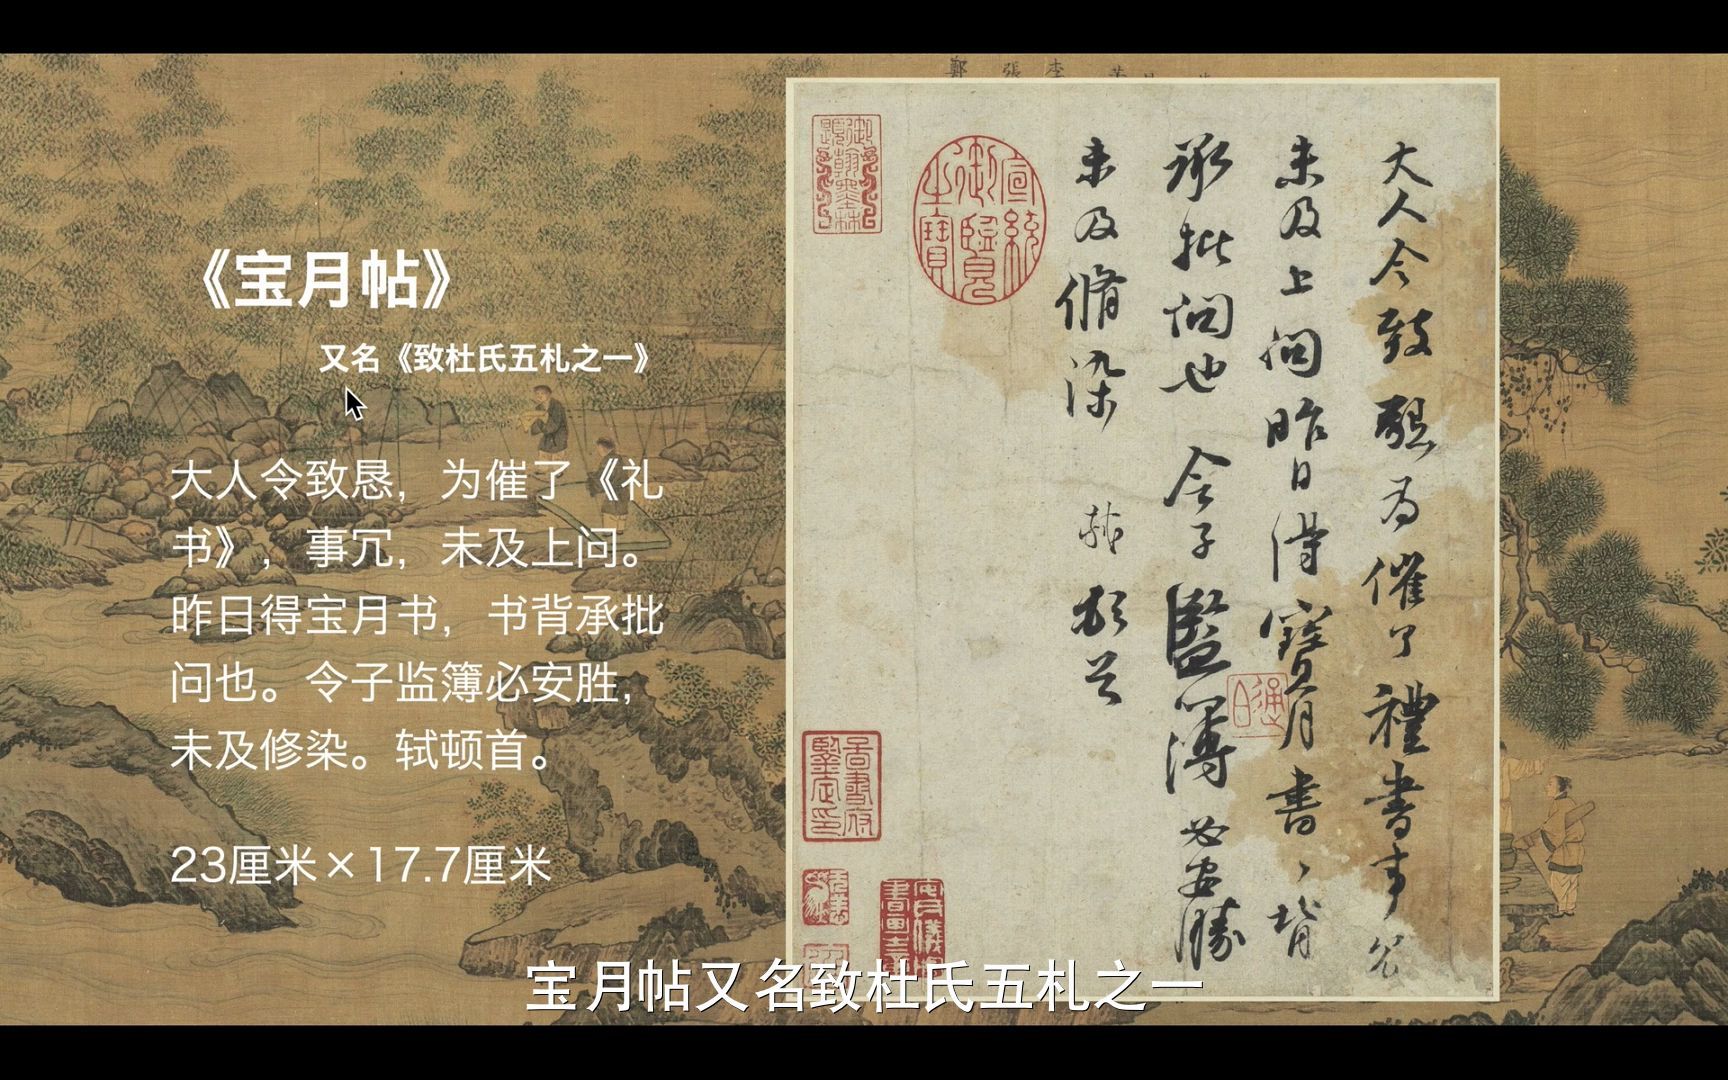 《宝月帖》
又名《致杜氏五札之一》
大人令致恳，为催了《礼
书》，事冗，未及上问。
昨日得宝月书，书背承批
问也。令子监簿必安胜，
未及修染。轼顿首。
23厘米×17.7厘米
大人令致懇为催了禮書事冗
未及上问昨日得寶月書、背
承批问也令子監簿必安勝
未及脩染 軾顿首
宣統御覽之寶
宝月帖又名致杜氏五札之一